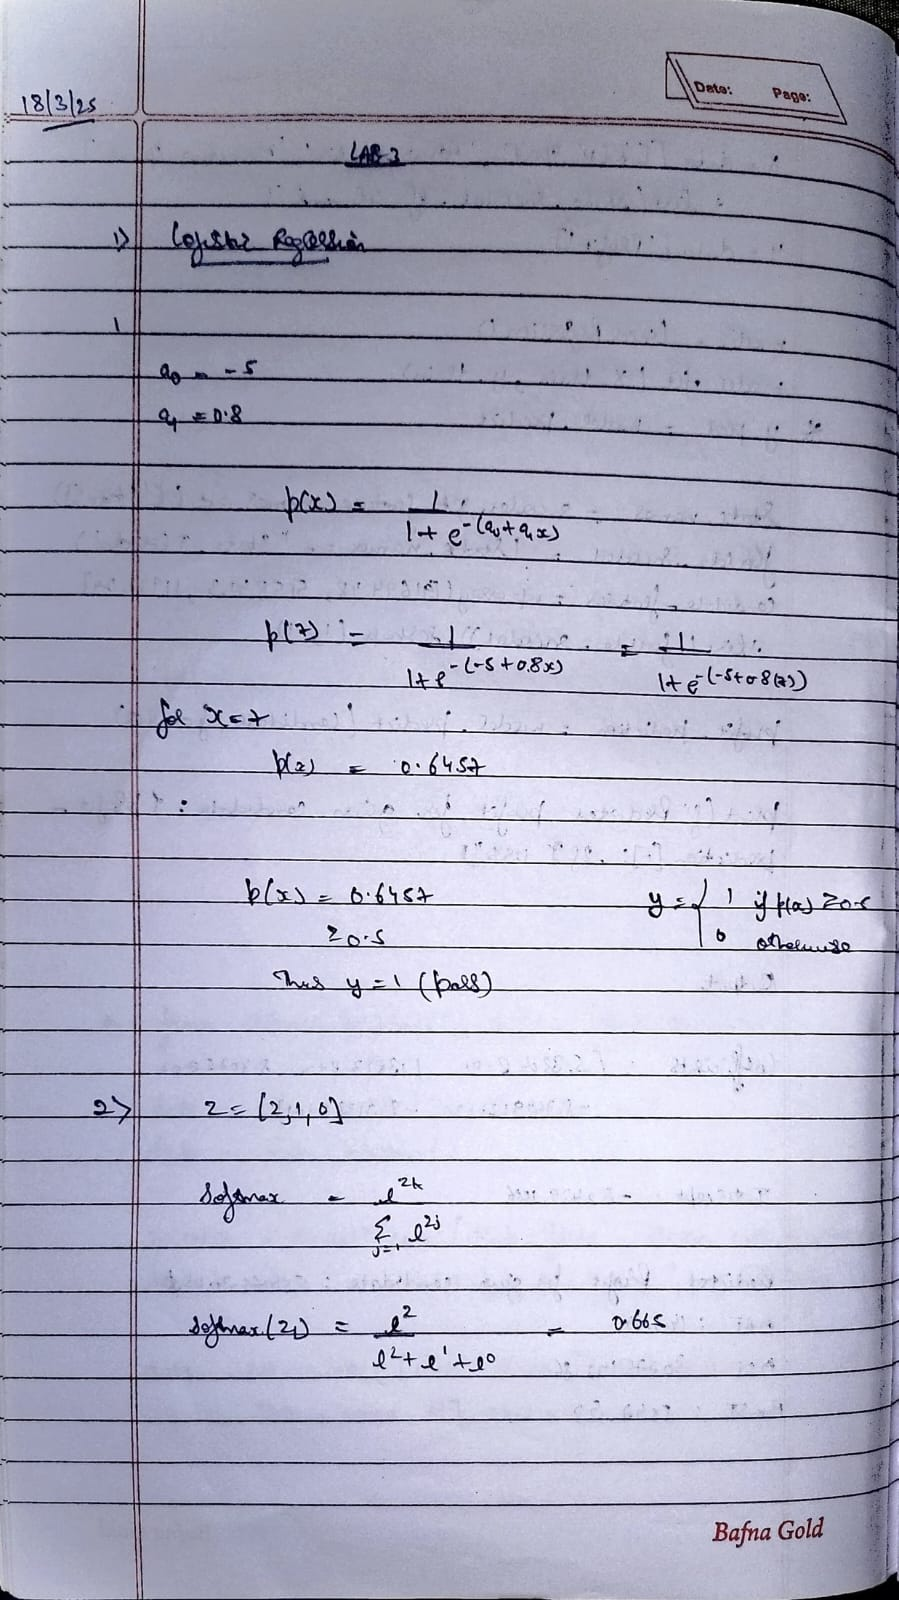 18/3/25
Date: Page:
LAB 3
1) Logistic Regression
1
a0 = -5
a1 = 0.8
p(x) = 1 / 1 + e^-(a0 + a1x)
p(7) = 1 / 1 + e^-(-5 + 0.8x) = 1 / 1 + e^-(-5 + 0.8(7))
for x = 7
p(x) = 0.6457
p(x) = 0.6457 y = { 1 if p(x) ≥ 0.5
≥ 0.5 0 otherwise
Thus y = 1 (pass)
2) z = [2, 1, 0]
Softmax = e^zk / Σ j=1 e^zj
softmax (z1) = e^2 / e^2 + e^1 + e^0 = 0.665
Bafna Gold